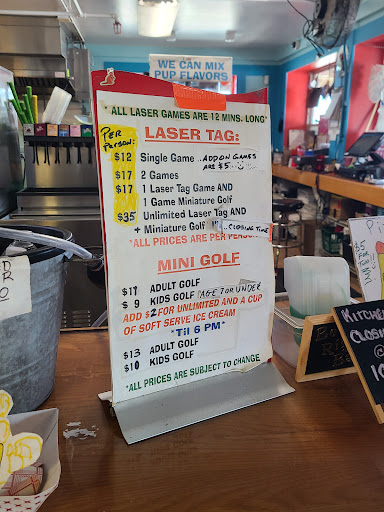 WE CAN MIX
PUP FLAVORS
*ALL LASER GAMES ARE 12 MINS. LONG*
PER PERSON:
LASER TAG:
$12 Single Game .. ADD ON GAMES ARE $5
$17 2 Games
$17 1 Laser Tag Game AND
1 Game Miniature Golf
$35 Unlimited Laser Tag AND
+ Miniature Golf ... CLOSING TIME
*ALL PRICES ARE PER PERSON
MINI GOLF
$11 ADULT GOLF
$ 9 KIDS GOLF (AGE 7 OR UNDER
ADD $2 FOR UNLIMITED AND A CUP
OF SOFT SERVE ICE CREAM
*Til 6 PM*
$13 ADULT GOLF
$10 KIDS GOLF
*ALL PRICES ARE SUBJECT TO CHANGE
KITCHEN
CLOSING
@
10